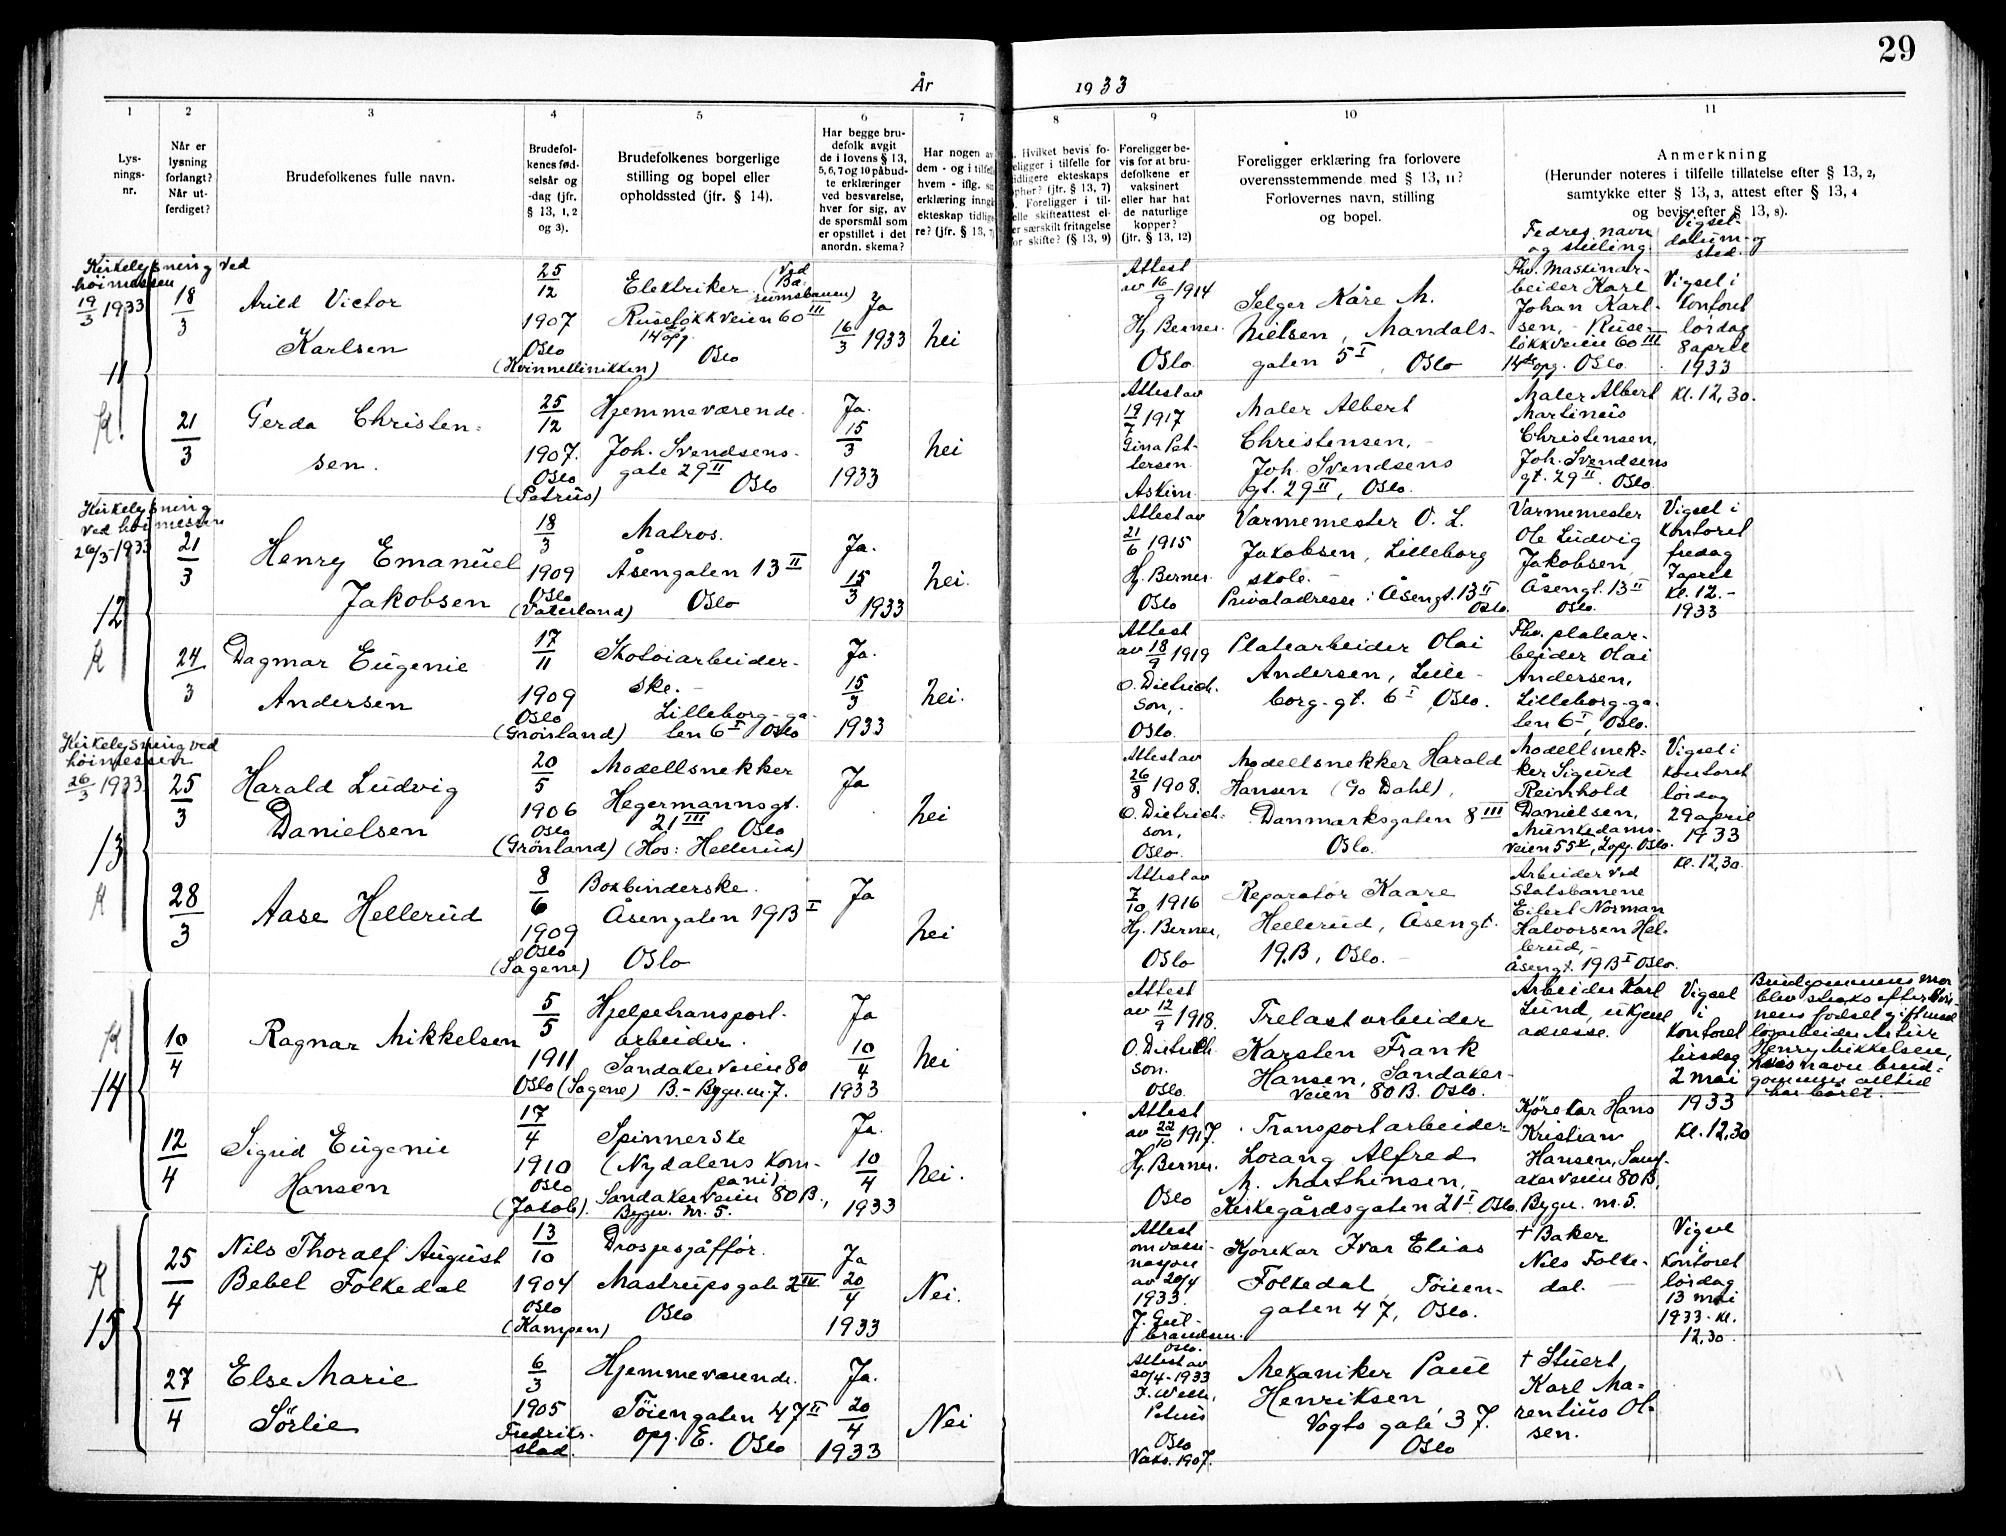 29
År 1933
1 2 3 4 5 6 7 8 9 10 11
Lys-
nings-
nr.
Når er
lysning
forlangt?
Når ut-
ferdiget?
Brudefolkenes fulle navn.
Brudefol-
kenes fød-
selsår og
-dag (jfr.
§ 13, 1, 2
og 3).
Brudefolkenes borgerlige
stilling og bopel eller
opholdssted (jfr. § 14).
Har begge bru-
defolk avgit
de i lovens § 13,
5, 6, 7 og 10 påbud-
te erklæringer
ved besvarelse,
hver for sig, av
de spørsmål som
er opstillet i det
anordn. skema?
Har nogen av
dem - og i tilfelle
hvem - iflg. sin
erklæring inngått
ekteskap tidlige-
re? (jfr. § 13, 7)
Hvilket bevis fo-
religger i tilfelle for
tidligere ekteskaps
ophør? (jfr. § 13, 7)
Foreligger i til-
felle skifteattest el-
ler særskilt fritagelse
for skifte? (§ 13, 9)
Foreligger be-
vis for at bru-
defolkene er
vaksinert
eller har hat
de naturlige
kopper?
(jfr. § 13, 12)
Foreligger erklæring fra forlovere
overensstemmende med § 13, 11?
Forlovernes navn, stilling
og bopel.
Anmerkning
(Herunder noteres i tilfelle tillatelse efter § 13, 2,
samtykke efter § 13, 3, attest efter § 13, 4
og bevis efter § 13, 8).
Fedres navn
og stilling.
Vigsel-
datum og
sted.
Kirkelysning ved
høimessen
19/3 1933
11
K.
18/3
Arild Victor
Karlsen
25/12
1907
Oslo
(Kvinneklinikken)
Elektriker (Ved Bæ-
rumsbanen)
Ruseløkkveien 60 III
14 opg.
Oslo
Ja
16/3 1933
Nei
Attest
av 16/9 1914
Hj. Berner.
Oslo
Selger Kåre M.
Nielsen, Mandals-
gaten 5 I, Oslo
Fhv. Maskinar-
beider Karl
Johan Karl-
sen, - Ruse-
løkkveien 60 III
14de opg. Oslo.
Vigsel i
kontoret
lørdag
8 april
1933
Kl. 12,30.
21/3
Gerda Christen-
sen.
25/12
1907.
Oslo
(Petrus)
Hjemmeværende.
Joh. Svendsens-
gate 29 II
Oslo
Ja.
15/3
1933
Nei
Attest av
19/7 1917
Gina Pet-
tersen.
Askim.
Maler Albert
Christensen, -
Joh. Svendsens
gt. 29 II, Oslo.
Maler Albert
Martinius
Christensen,
Joh. Svendsens
gt. 29 II. Oslo.
Kirkelysning
ved høimessen
26/3-1933
12
K
21/3
Henry Emanuel
Jakobsen
18/3
1909
Oslo
(Vaterland)
Matros.
Åsengaten 13 II
Oslo
Ja.
15/3
1933
Nei.
Attest av
21/6 1915
Hj. Berner.
Oslo
Varmemester O. L.
Jakobsen, Lilleborg
skole. -
Privatadresse: Åsengt. 13 II
Oslo.
Varmemester
Ole Ludvig
Jakobsen,
Åsengt. 13 II
Oslo.
Vigsel i
kontoret
fredag
7 april
Kl. 12.-
1933
24/3
Dagmar Eugenie
Andersen
17/11
1909
Oslo
(Grønland)
Skotøiarbeider-
ske. -
Lilleborg-ga-
ten 6 I Oslo
Ja.
15/3
1933
Nei.
Attest
av 18/9 1919
O. Dietrich-
son, -
Oslo.
Platearbeider Olai
Andersen, Lille-
borg-gt. 6 I, Oslo.
Fhv. platear-
beider Olai
Andersen,
Lilleborg-ga-
ten 6 I, Oslo.
Kirkelysning ved
høimessen
26/3 1933.
13
K
25/3
Harald Ludvig
Danielsen
20/5
1906
Oslo
(Grønland)
Modellsnekker
Hegermannsgt.
21 III Oslo
(Hos: Hellerud)
Ja
Nei
Attest av
26/8 1908.
O. Dietrich-
son,
Oslo.
Modellsnekker Harald
Hansen (c/o Dahl),
Danmarksgaten 8 III
Oslo.
Modellsnek-
ker Sigurd
Reinhold
Danielsen,
Munkedams-
veien 55 , 2opg. Oslo.
Vigsel i
kontoret
lørdag
29 april
1933
Kl. 12,30.
28/3
Aase Hellerud
8/6
1909
Oslo
(Sagene)
Bokbinderske.
Åsengaten 19B I
Oslo
Ja
Nei
Attest av
7/10 1916
Hj. Berner,
Oslo
Reparatør Kaare
Hellerud, Åsengt.
19.B, Oslo. -
Arbeider ved
Statsbanene
Eilert Norman
Halvorsen Hel-
lerud, -
Åsengt. 19B I Oslo.
K
14
10/4
Ragnar Mikkelsen
5/5
1911
Oslo (Sagene)
Hjelpetransport-
arbeider.
Sandakerveien 80
B. - Bygn. nr. 7.
Ja
10/4
1933
Nei
Attest
av 12/9 1918.
O. Dietrich-
son.
Oslo.
Trelastarbeider
Karsten Frank
Hansen, Sandaker-
veien 80B. Oslo.
Arbeider Karl
Lund, ukjent
adresse.
Vigsel
i
kontoret
tirsdag
2 mai
1933
Kl. 12,30
Brudgommens mor
blev straks efter
nens fødsel gift med
løsarbeider Artur
Henry Mikkelsen,
hvis navn brud-
gommen alltid
har båret.
12/4
Sigrid Eugenie
Hansen
17/4
1910
Oslo
(Jacob).
Spinnerske
(Nydalens Kom-
pani)
Sandakerveien 80B.,
Bygn. nr. 5.
Ja.
10/4
1933
Nei.
Attest
av 22/10 1917.
Hj. Berner.
Oslo
Transportarbeider
Lorang Alfred
M. Marthinsen,
Kirkegårdsgaten 21 I Oslo.
Kjørekar Hans
Kristian
Hansen, Sand-
akerveien 80B,
Bygn. nr. 5.
K
15
25/4
Nils Thoralf August
Bebel Folkedal
13/10
1904
Oslo
(Kampen)
Drosjesjåffør.
Mastrupsgate 2 III
Oslo
Ja
20/4
1933
Nei.
Attest
om vaksi-
nasjon
av 20/4
1933.
J. Gul-
brandsen.
Oslo.
Kjørekar Ivar Elias
Folkedal, Tøien-
gaten 47, Oslo.
† Baker
Nils Folke-
dal.
Vigsel
i
kontoret
lørdag
13 mai
1933. kl.
12,30.
27/4
Else Marie
Sørlie
6/3
1905
Fredrik-
stad.
Hjemmeværende.
Tøiengaten 47 II
opg. E. Oslo
Ja.
20/4
1933
Nei
Attest av
20/4-1933
Petrus
Oslo
Vaks. 1907.
Mekaniker Paul
Henriksen,
Vogts gate 37.
Oslo
† Stuert
Karl Ma-
rentius Ol-
sen.